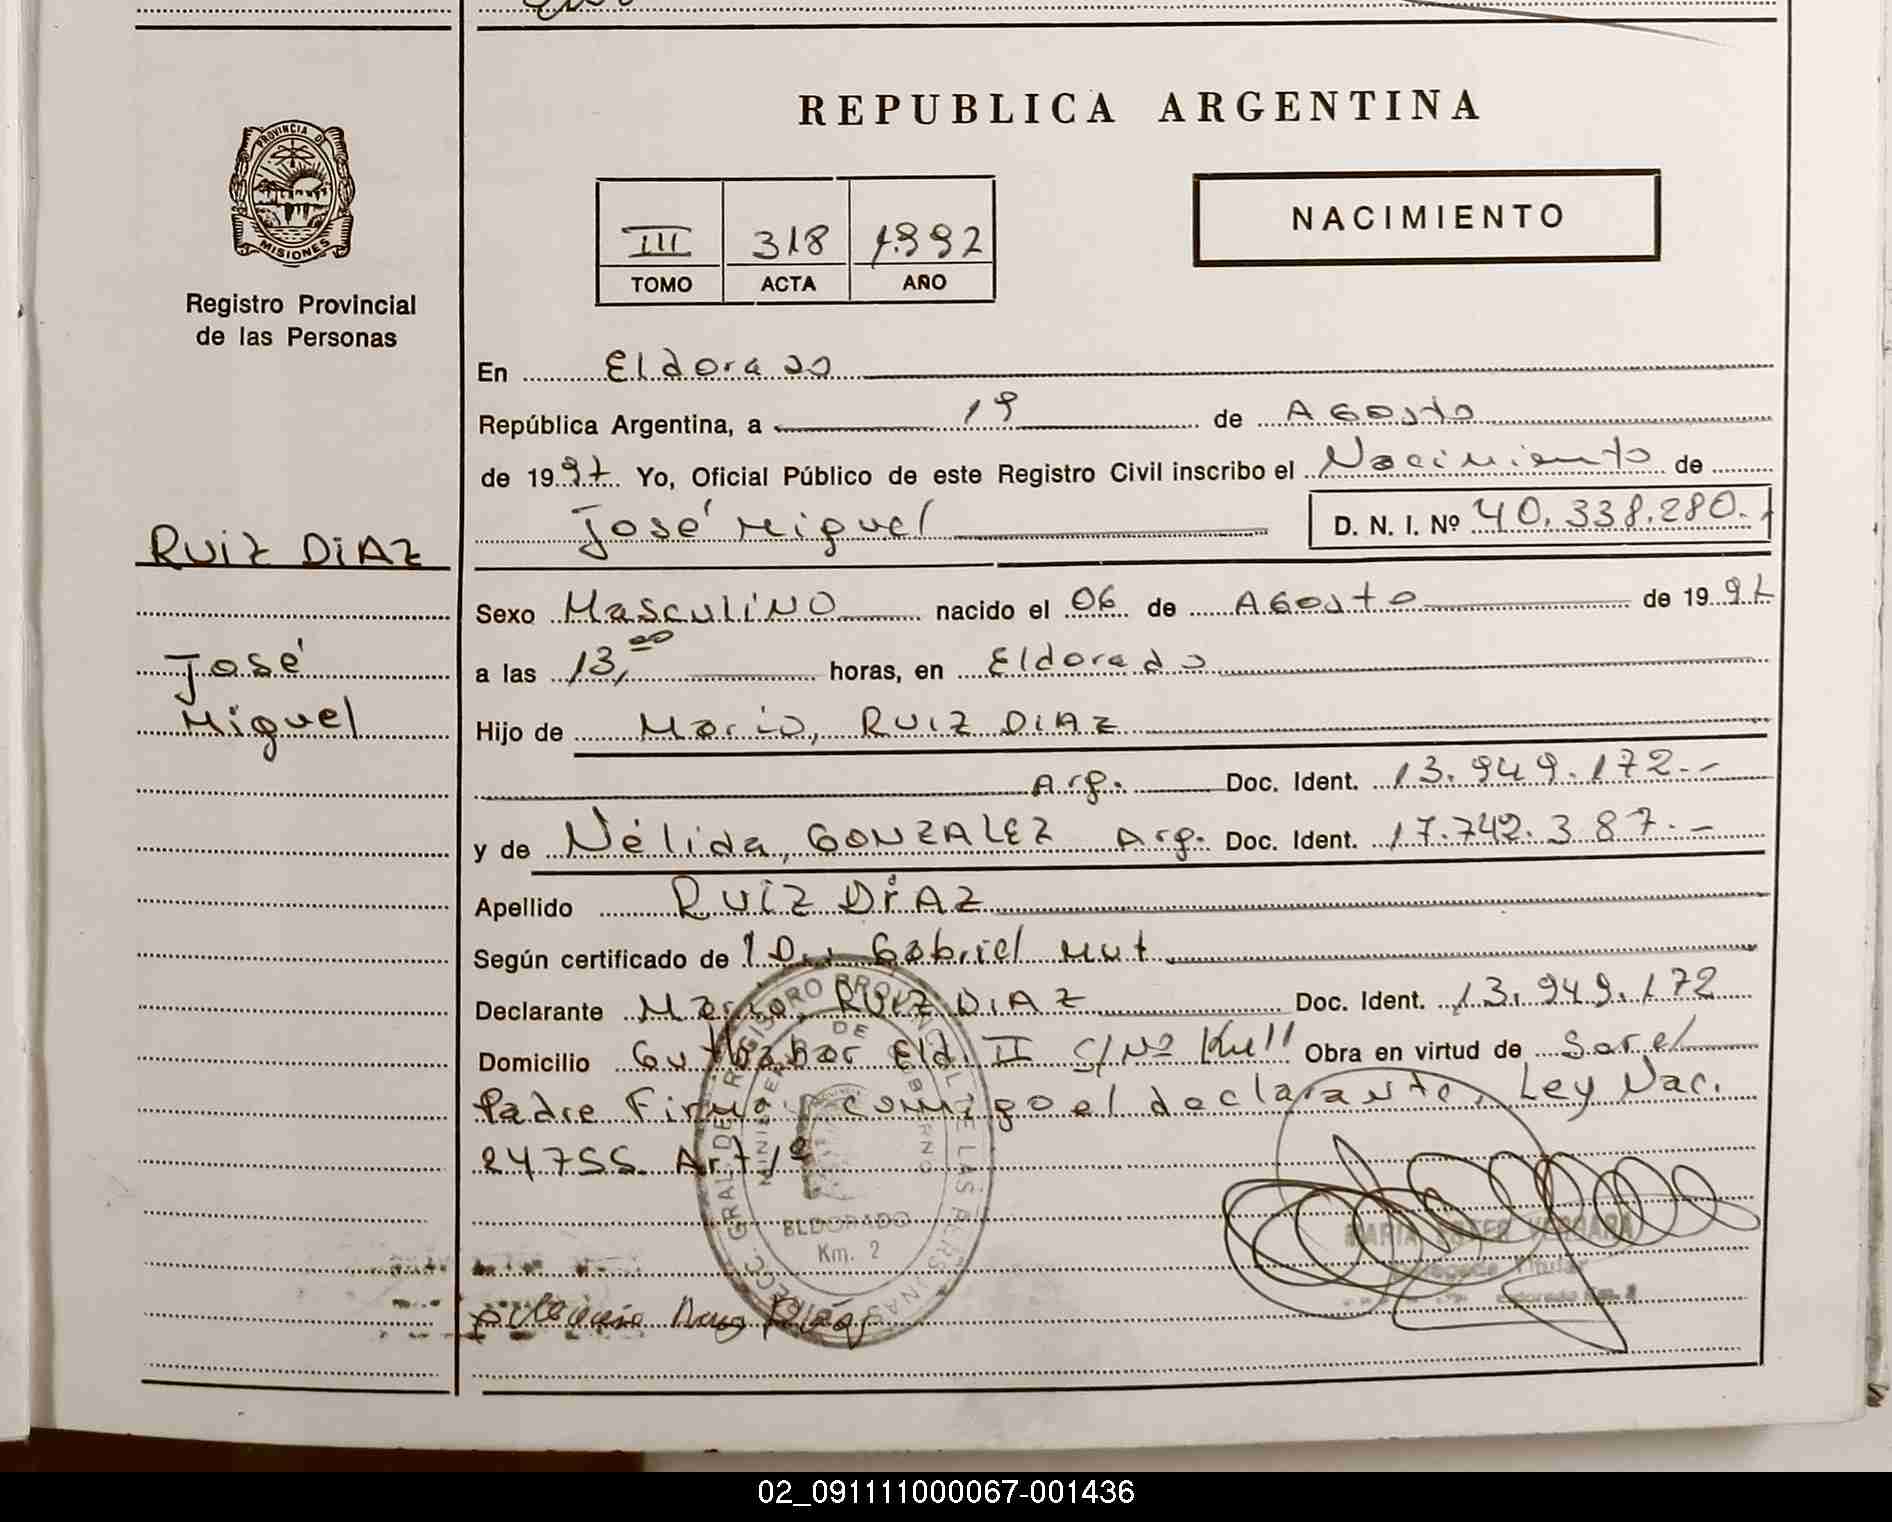 REPUBLICA ARGENTINA
PROVINCIA DE
MISIONES
Registro Provincial
de las Personas
NACIMIENTO
III 318 1.997
TOMO ACTA AÑO
En Eldorado
República Argentina, a 19 de Agosto
de 1997 Yo, Oficial Público de este Registro Civil inscribo el Nacimiento de
José Miguel D. N. I. Nº 40.338.280.-
RUIZ DIAZ
José
Miguel
Sexo Masculino nacido el 06 de Agosto de 1997
a las 13,00 horas, en Eldorado
Hijo de Mario, RUIZ DIAZ
Arg. Doc. Ident. 13.949.172.-
y de Nélida, GONZALEZ Arg. Doc. Ident. 17.742.387.-
Apellido RUIZ DIAZ
Según certificado de Gabriel Mut
Declarante Mario, RUIZ DIAZ Doc. Ident. 13.949.172
Domicilio Eld. II S/Nº Obra en virtud de Ser el
Padre Firma conmigo el declarante, Ley Nac.
24755 Art 1º
DE
ELDORADO
Km. 2
MARIA ESTER VERGARA
Titular
Eldorado Km. 2
02_091111000067-001436